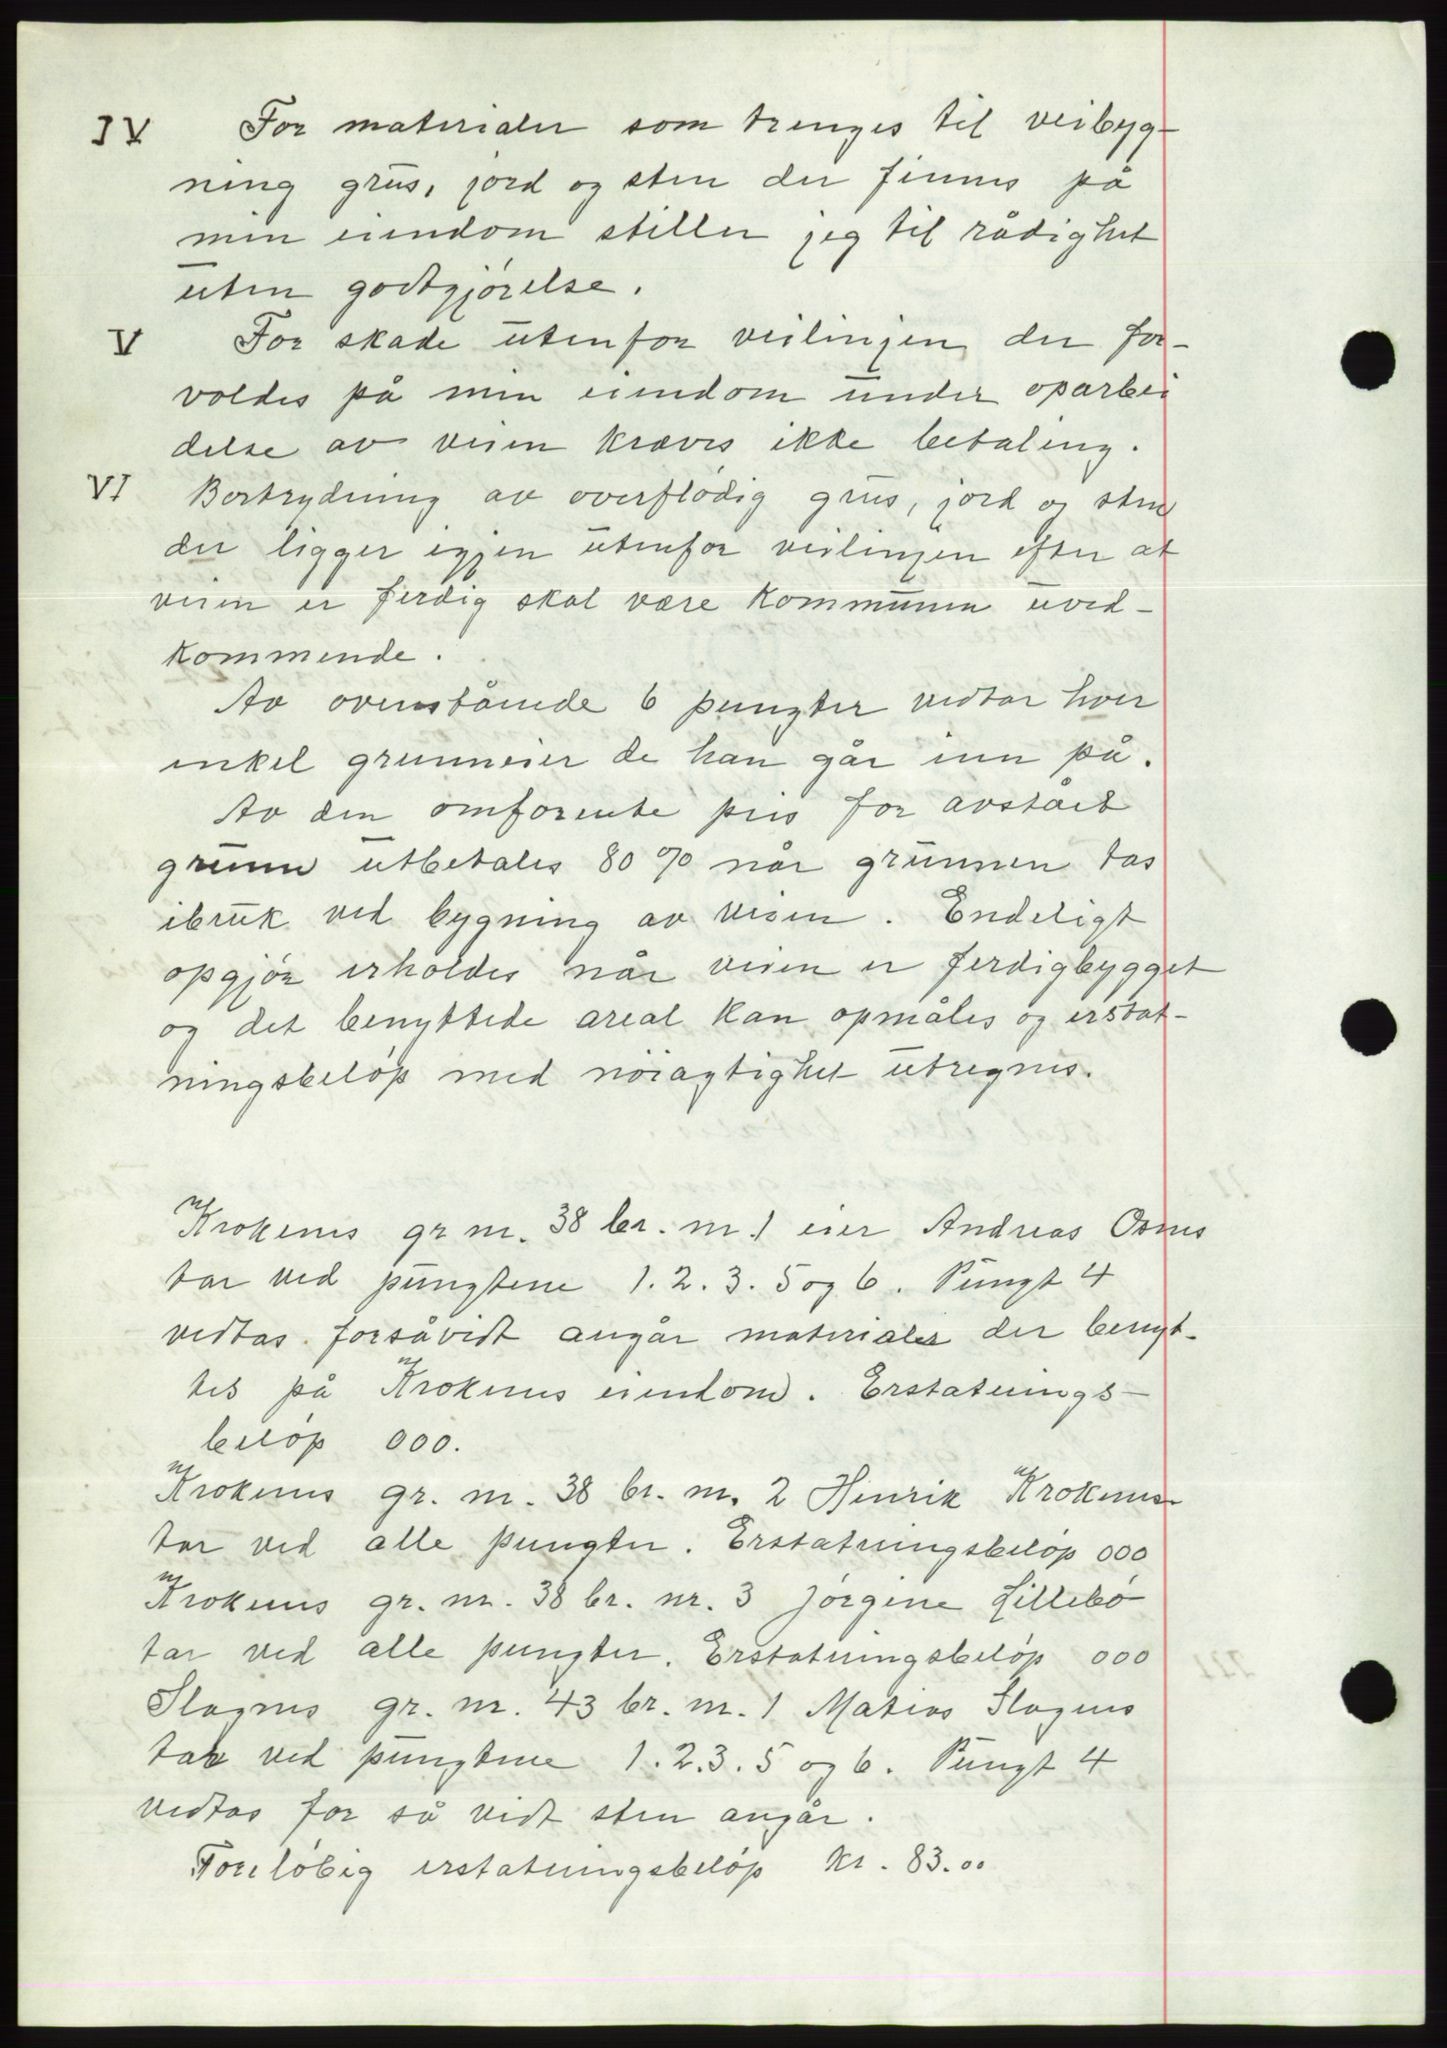 IV For materialer som trenges til veibyg-
ning grus, jord og sten der finnes på
min eiendom stiller jeg til rådighet
uten godtgjørelse.
V For skade utenfor veilinjen der for-
voldes på min eiendom under oparbei
delse av veien kræves ikke betaling.
VI Bortrydning av overflødig grus, jord og sten
der ligger igjen utenfor veilinjen efter at
veien er ferdig skal være kommunen uved-
kommende.
Av ovenstående 6 pungter vedtar hver
enkel grunneier de han går inn på.
Av den omforente pris for avstået
grunn utbetales 80 % når grunnen tas
ibruk ved bygning av veien. Endeligt
opgjør erholdes når veien er ferdigbygget
og det benyttede areal kan opmåles og erstat-
ningsbeløp med nøiagtighet utregnes.
Krokenes gr nr. 38 br. nr. 1 eier Andreas Osnes
tar ved pungtene 1. 2. 3. 5 og 6. Pungt 4
vedtas forsåvidt angår materialer der benyt-
tes på Krokenes eiendom. Erstatnings-
beløp 000.
Krokenes gr. nr. 38 br. nr. 2 Henrik Krokenes
tar ved alle pungter. Erstatningsbeløp 000
Krokenes gr. nr. 38 br. nr. 3 Jørgine Lillebø
tar ved alle pungter. Erstatningsbeløp 000
Slagnes gr. nr. 43 br. nr. 1 Matias Slagnes
tar ved pungtene 1. 2. 3. 5 og 6. Pungt 4
vedtas for så vidt sten angår.
Foreløbig erstatningsbeløp kr. 83.00